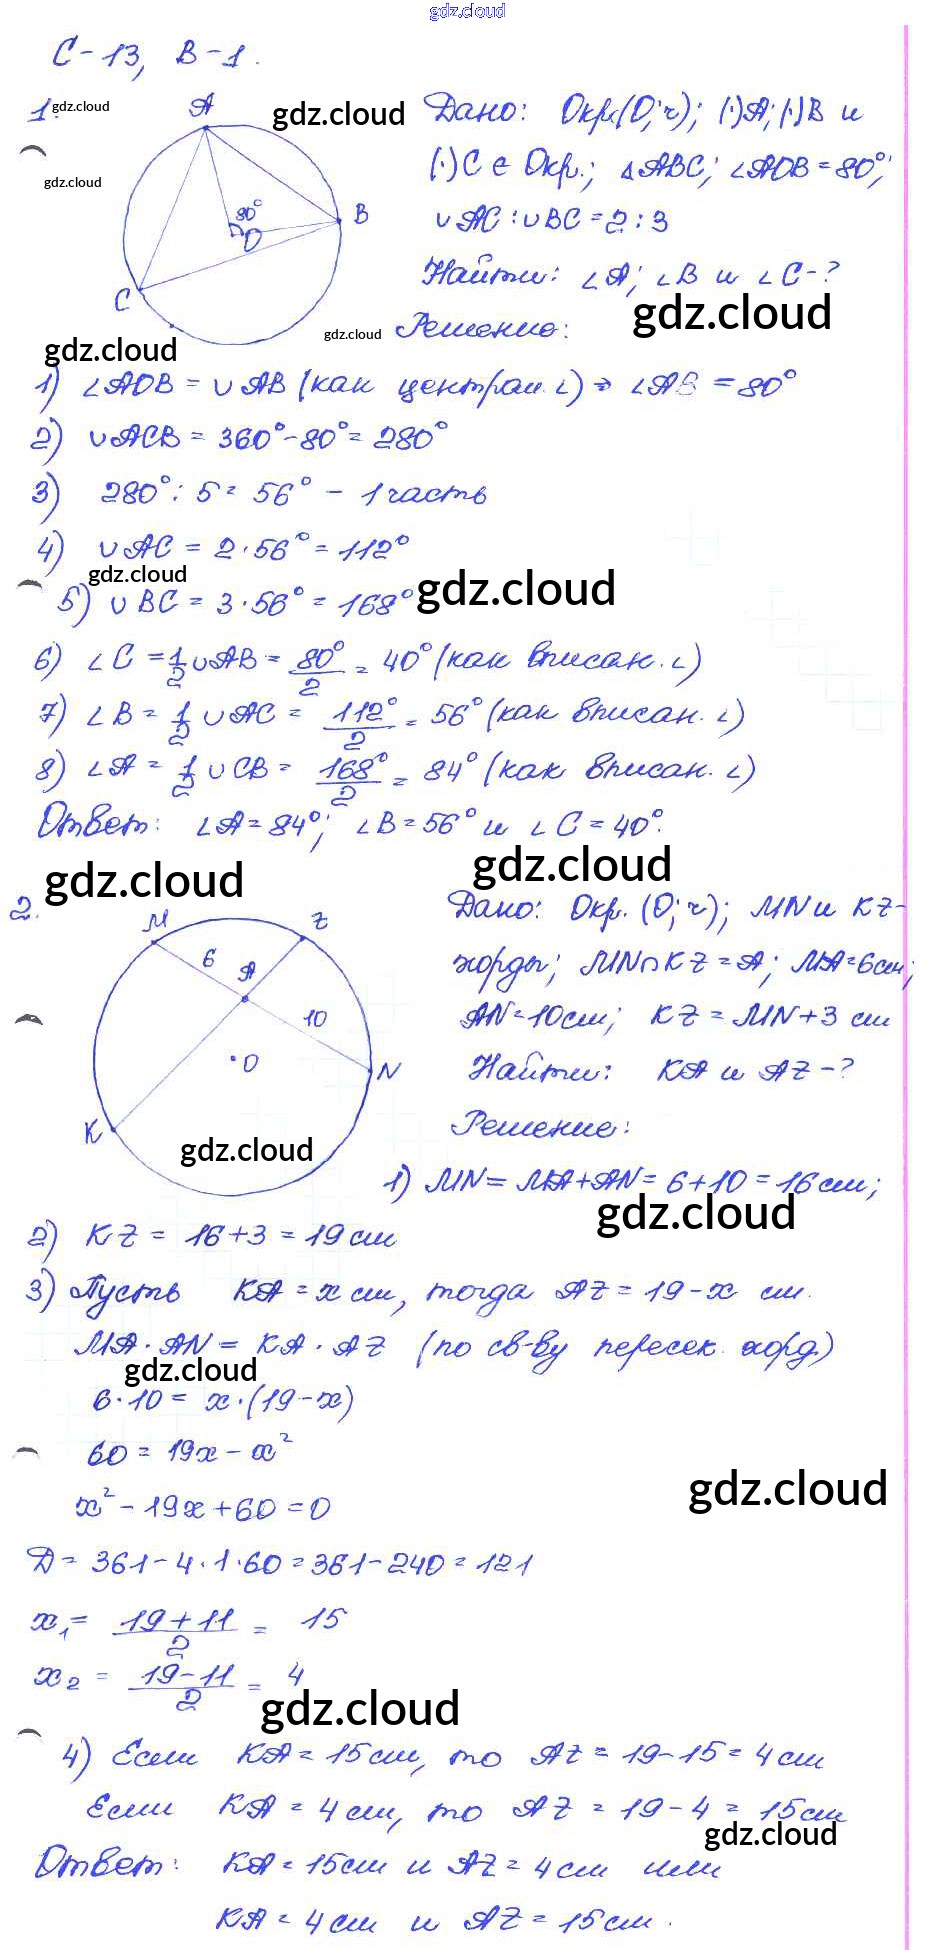 gdz.cloud
С-13, В-1.
1. gdz.cloud
A
gdz.cloud
Дано: Окр.(O;r); (·)A; (·)B и
gdz.cloud
(·)C ∈ Окр.; △ABC; ∠AOB = 80°;
80°
O
B
∪AC : ∪BC = 2 : 3
C
Найти: ∠A; ∠B и ∠C - ?
gdz.cloud
gdz.cloud
gdz.cloud
Решение:
1) ∠AOB = ∪AB (как централ. ∠) ⇒ ∠AB = 80°
2) ∪ACB = 360° - 80° = 280°
3) 280° : 5 = 56° - 1 часть
4) ∪AC = 2 · 56° = 112°
gdz.cloud
gdz.cloud
5) ∪BC = 3 · 56° = 168°
6) ∠C = 1/2 ∪AB = 80°/2 = 40° (как вписан. ∠)
7) ∠B = 1/2 ∪AC = 112°/2 = 56° (как вписан. ∠)
8) ∠A = 1/2 ∪CB = 168°/2 = 84° (как вписан. ∠)
Ответ: ∠A = 84°; ∠B = 56° и ∠C = 40°.
gdz.cloud
gdz.cloud
2.
M
Z
6
A
10
O
N
K
Дано: Окр. (O; r); MN и KZ -
хорды; MN ∩ KZ = A; MA = 6см;
AN = 10см; KZ = MN + 3 см
Найти: KA и AZ - ?
Решение:
gdz.cloud
1) MN = MA + AN = 6 + 10 = 16 см;
gdz.cloud
2) KZ = 16 + 3 = 19 см
3) Пусть KA = x см, тогда AZ = 19 - x см.
MA · AN = KA · AZ (по св-ву пересек. хорд)
gdz.cloud
6 · 10 = x · (19 - x)
60 = 19x - x²
gdz.cloud
x² - 19x + 60 = 0
Д = 361 - 4 · 1 · 60 = 361 - 240 = 121
x₁ = (19 + 11)/2 = 15
x₂ = (19 - 11)/2 = 4
gdz.cloud
4) Если KA = 15 см, то AZ = 19 - 15 = 4 см
Если KA = 4 см, то AZ = 19 - 4 = 15 см
gdz.cloud
Ответ: KA = 15 см и AZ = 4 см или
KA = 4 см и AZ = 15 см.